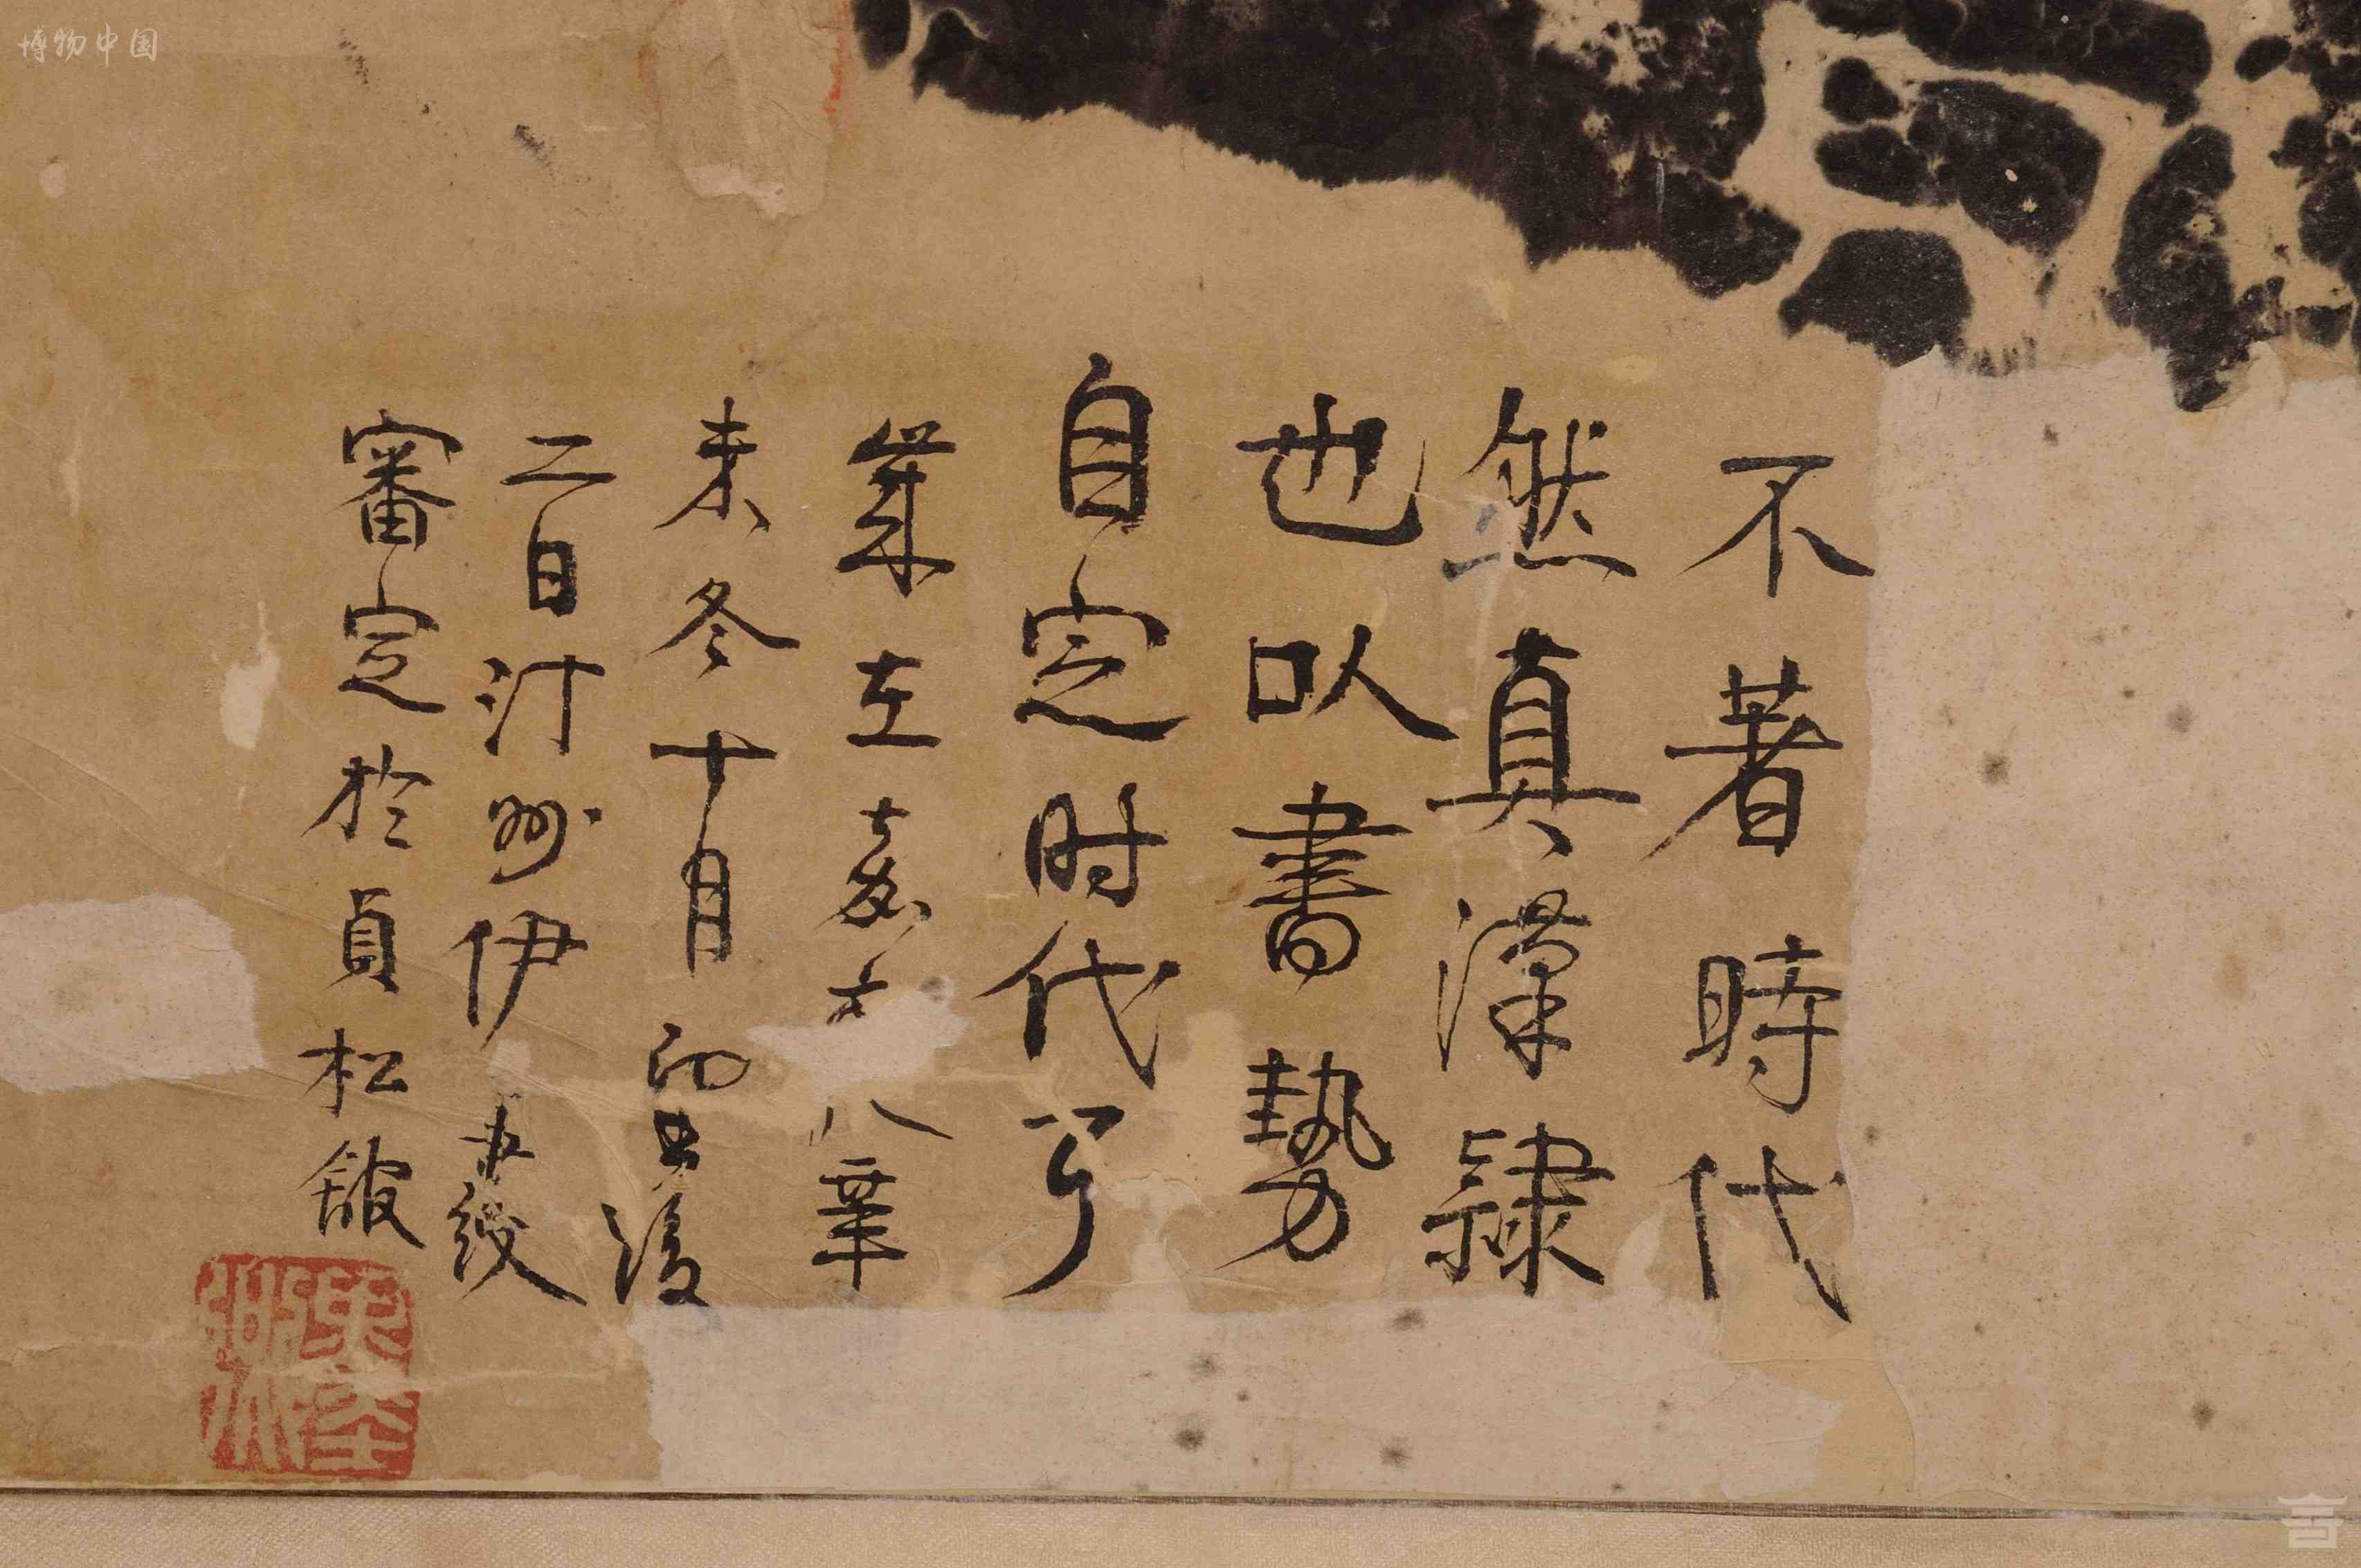 不著時代
然真漢隸
也以書勢
自定时代了
葉在嘉
八葦
未冬十月
後
二日汀州伊秉綬
審定於貞松館
博物中国